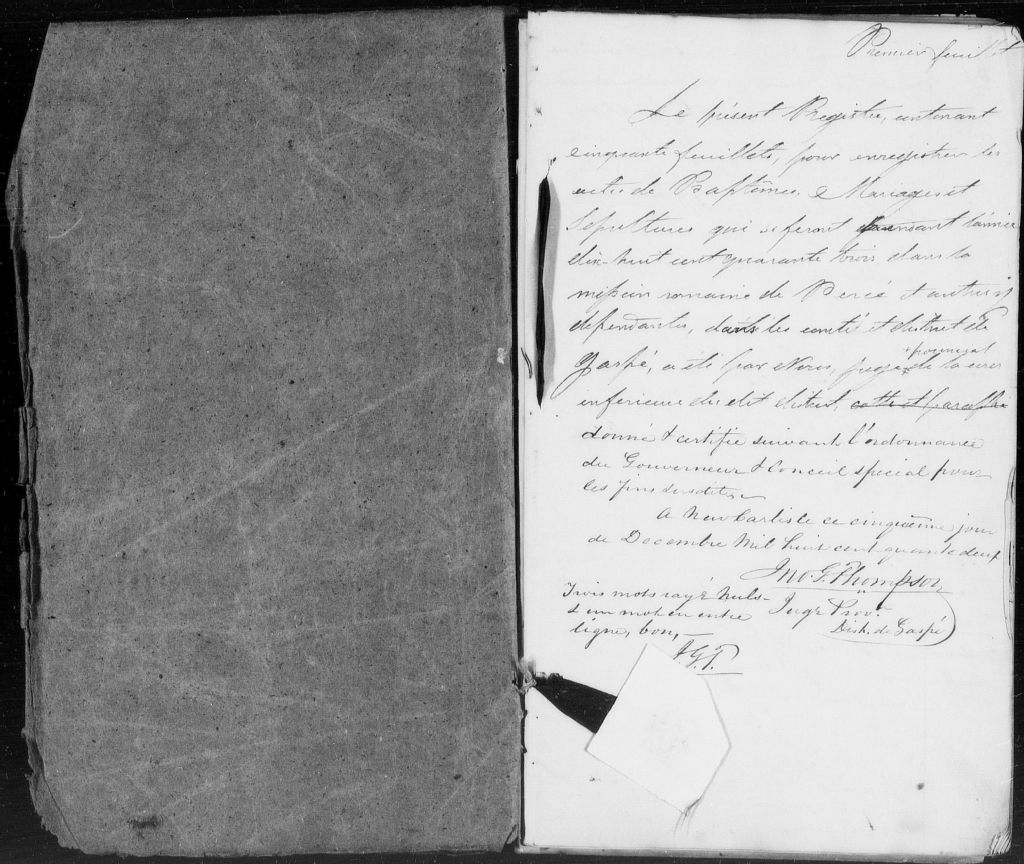 Premier feuillet
Le présent Registre, contenant
cinquante feuillets, pour enregistrer les
actes de Baptêmes, Mariages et
Sepultures qui se feront pendant l'année
dix-huit cent quarante trois dans la
mission romaine de Percé et autres
dependantes, dans les comté et district de
Gaspé, a été par Nous, juge + de la cour
+ provincial
inferieure du dit district, cotté et paraffé
donné & certifié suivant l'ordonnance
du Gouverneur & Conseil special pour
les fins susdites,
A New Carlisle ce cinquième jour
de Decembre Mil huit cent quarante deux
Jno. G. Thompson
Juge Prov.
Dist. de Gaspé
Trois mots rayé nuls -
& un mot en entre
ligne, bon, -
J.G.T.